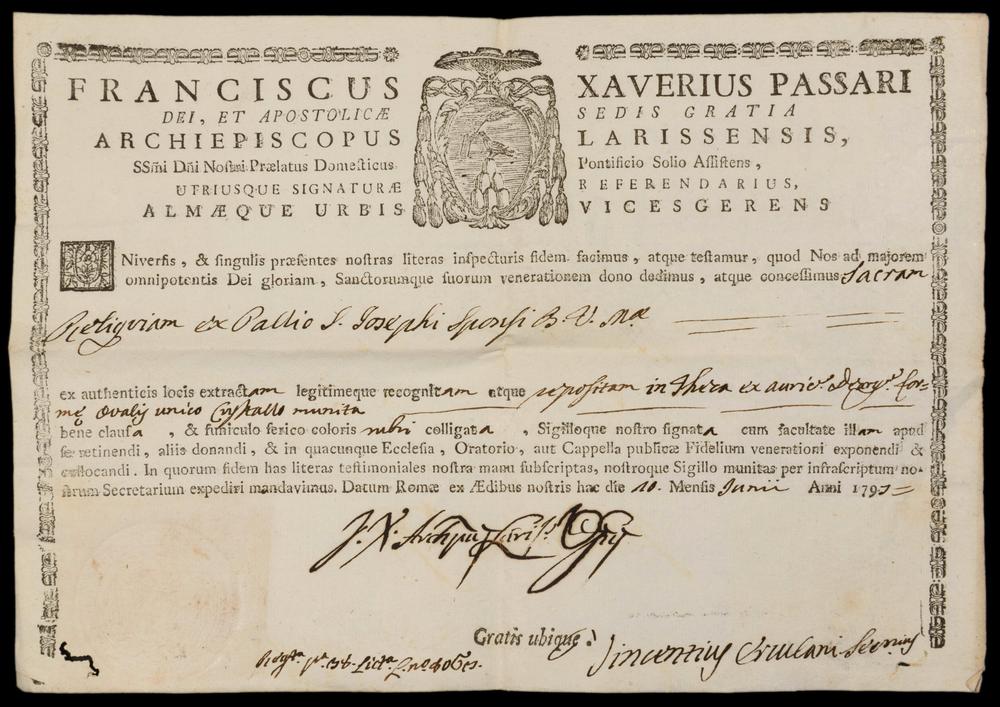 FRANCISCUS XAVERIUS PASSARI
DEI, ET APOSTOLICÆ SEDIS GRATIA
ARCHIEPISCOPUS LARISSENSIS,
SSm̃i Dñi Nostri Prælatus Domesticus Pontificio Solio Assistens,
UTRIUSQUE SIGNATURÆ REFERENDARIUS,
ALMÆQUE URBIS VICESGERENS
UNiversis, & singulis præsentes nostras literas inspecturis fidem facimus, atque testamur, quod Nos ad majorem
omnipotentis Dei gloriam, Sanctorumque suorum venerationem dono dedimus, atque concessimus Sacram
Reliquiam ex Pallio S. Josephi Sponsi B. V. Mæ
ex authenticis locis extractam legitimeque recognitam atque repositam in Theca ex auric. for-
mę ovalis unico Crystallo munita
bene clausa, & funiculo serico coloris rubri colligata, Sigilloque nostro signata cum facultate illam apud
se retinendi, aliis donandi, & in quacunque Ecclesia, Oratorio, aut Cappella publicæ Fidelium venerationi exponendi &
collocandi. In quorum fidem has literas testimoniales nostra manu subscriptas, nostroque Sigillo munitas per infrascriptum no-
strum Secretarium expediri mandavimus. Datum Romæ ex Ædibus nostris hac die 10. Mensis Junii Anni 179
Gratis ubique.
Vincentius